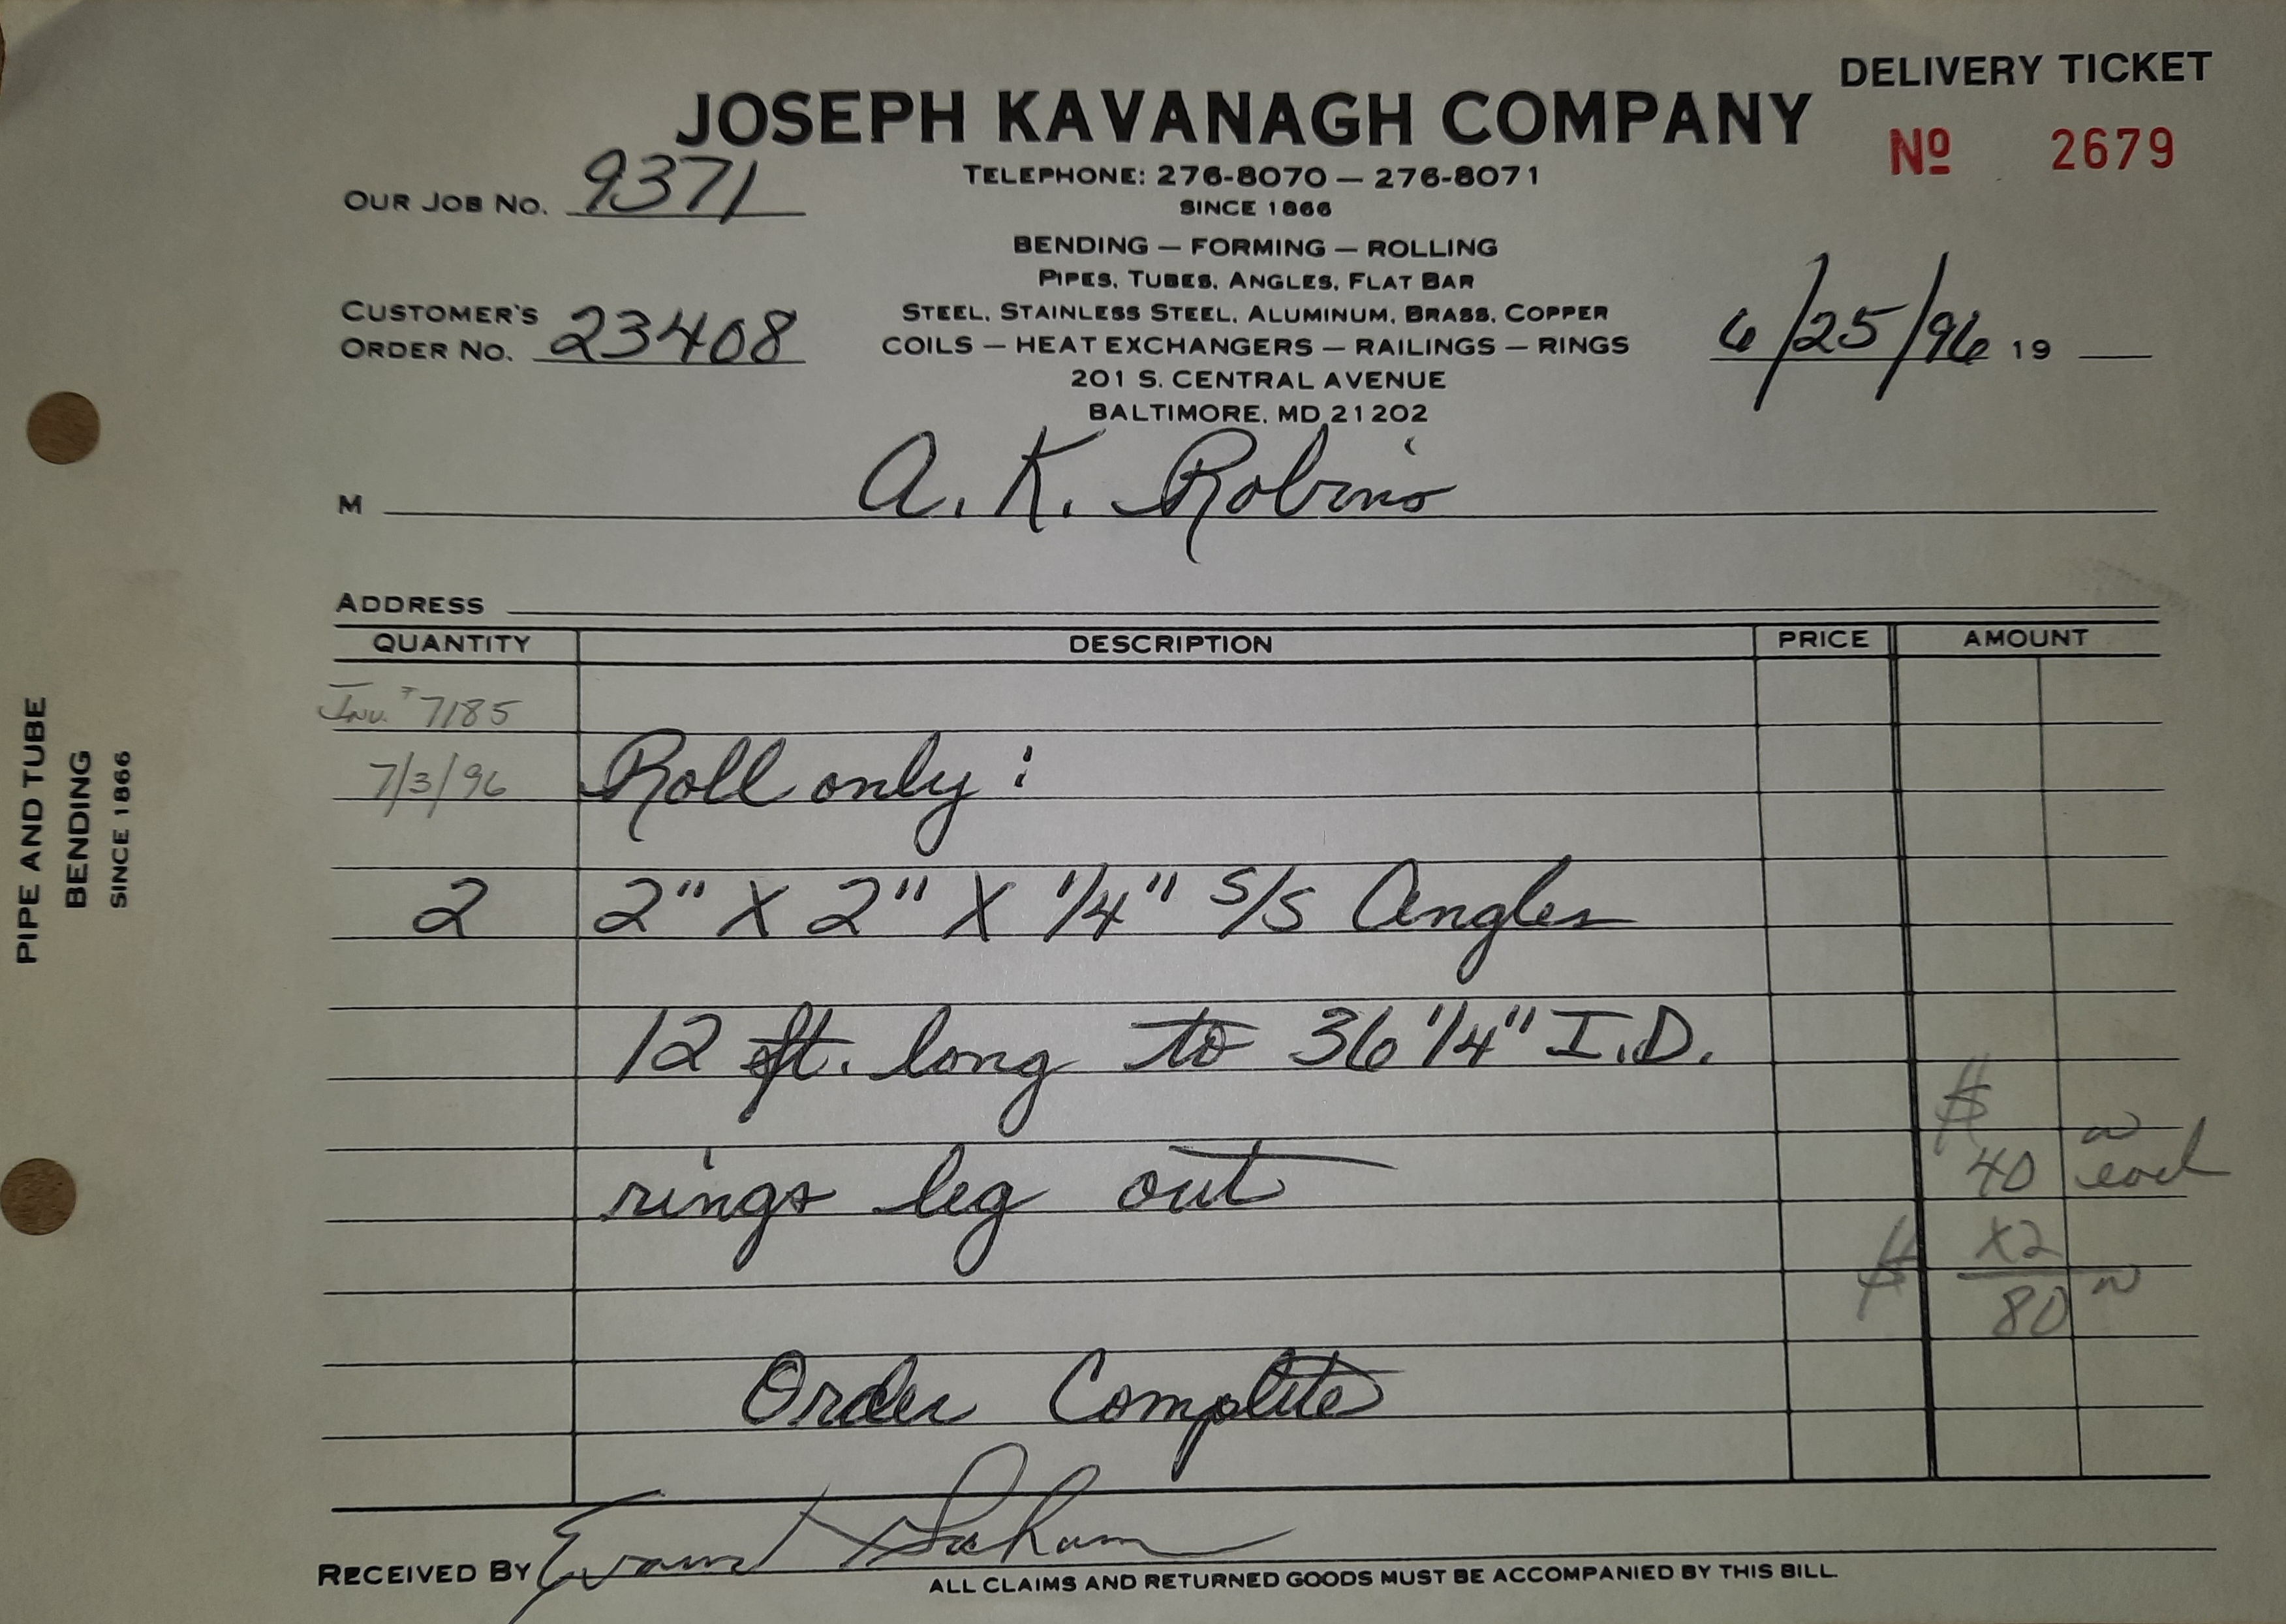 DELIVERY TICKET
JOSEPH KAVANAGH COMPANY
Nº 2679
TELEPHONE: 276-8070 — 276-8071
OUR JOB NO. 9371
SINCE 1866
BENDING — FORMING — ROLLING
PIPES, TUBES, ANGLES, FLAT BAR
STEEL, STAINLESS STEEL, ALUMINUM, BRASS, COPPER
CUSTOMER'S
ORDER NO. 23408
COILS — HEAT EXCHANGERS — RAILINGS — RINGS
6/25/96 19
201 S. CENTRAL AVENUE
BALTIMORE, MD 21202
M A. K. Robins
ADDRESS
QUANTITY DESCRIPTION PRICE AMOUNT
Inv. #7185
7/3/96 Roll only:
2 2" X 2" X 1/4" S/S Angles
12 ft. long to 36 1/4" I.D.
$
rings leg out 40 each
X2
$ 80
Order Complete
RECEIVED BY Graham
ALL CLAIMS AND RETURNED GOODS MUST BE ACCOMPANIED BY THIS BILL.
PIPE AND TUBE
BENDING
SINCE 1866